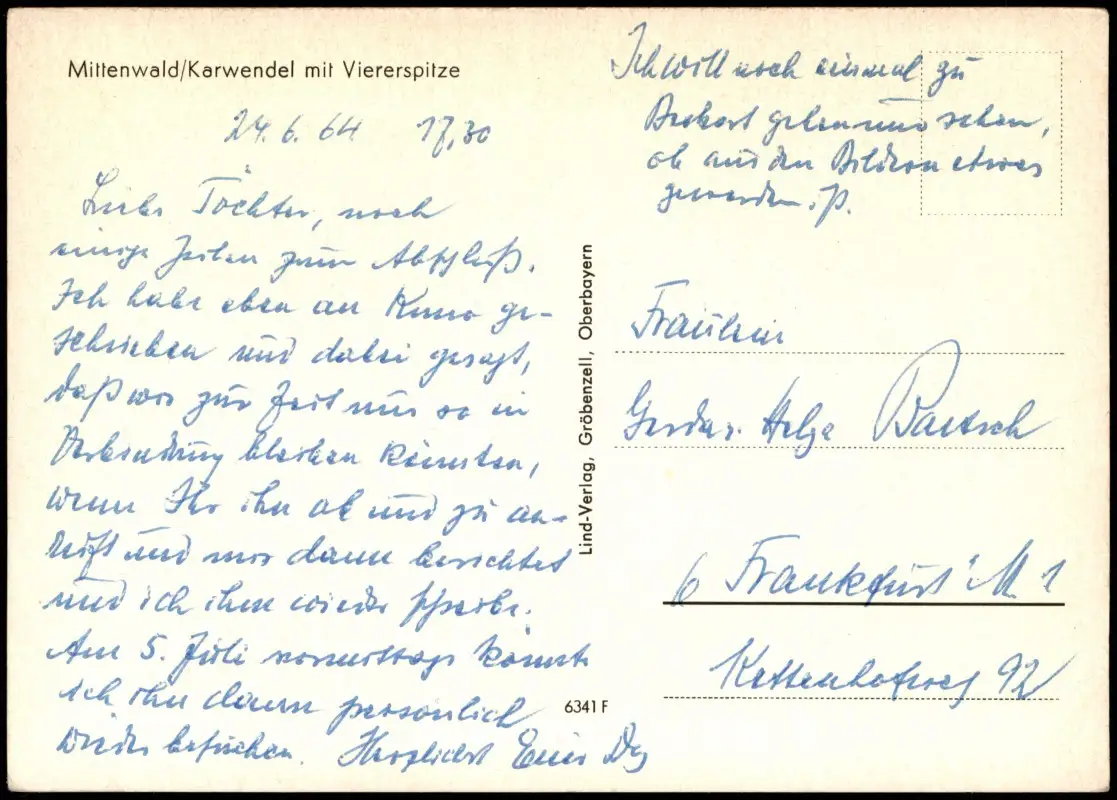 Mittenwald/Karwendel mit Viererspitze
24.6.64 17,30
Liebe Töchter, noch
einige Zeilen zum Abschluß.
Ich habe eben an Kuno ge-
schrieben und dabei gesagt,
daß wir zur Zeit nur so in
Verbindung bleiben könnten,
wenn Ihr ihn ab und zu an-
ruft und mir dann berichtet
und ich ihm wieder schreibe.
Am 5. Juli vormittags könnte
ich ihn dann persönlich
wieder besuchen. Herzlichst Euer
Ich will noch einmal zu
gehen und sehen,
ob aus den Bildern etwas
geworden. P.
Lind-Verlag, Gröbenzell, Oberbayern
6341 F
Fräulein
Gerda u. Helga Baetsch
6 Frankfurt M 1
Kettenhofweg 92